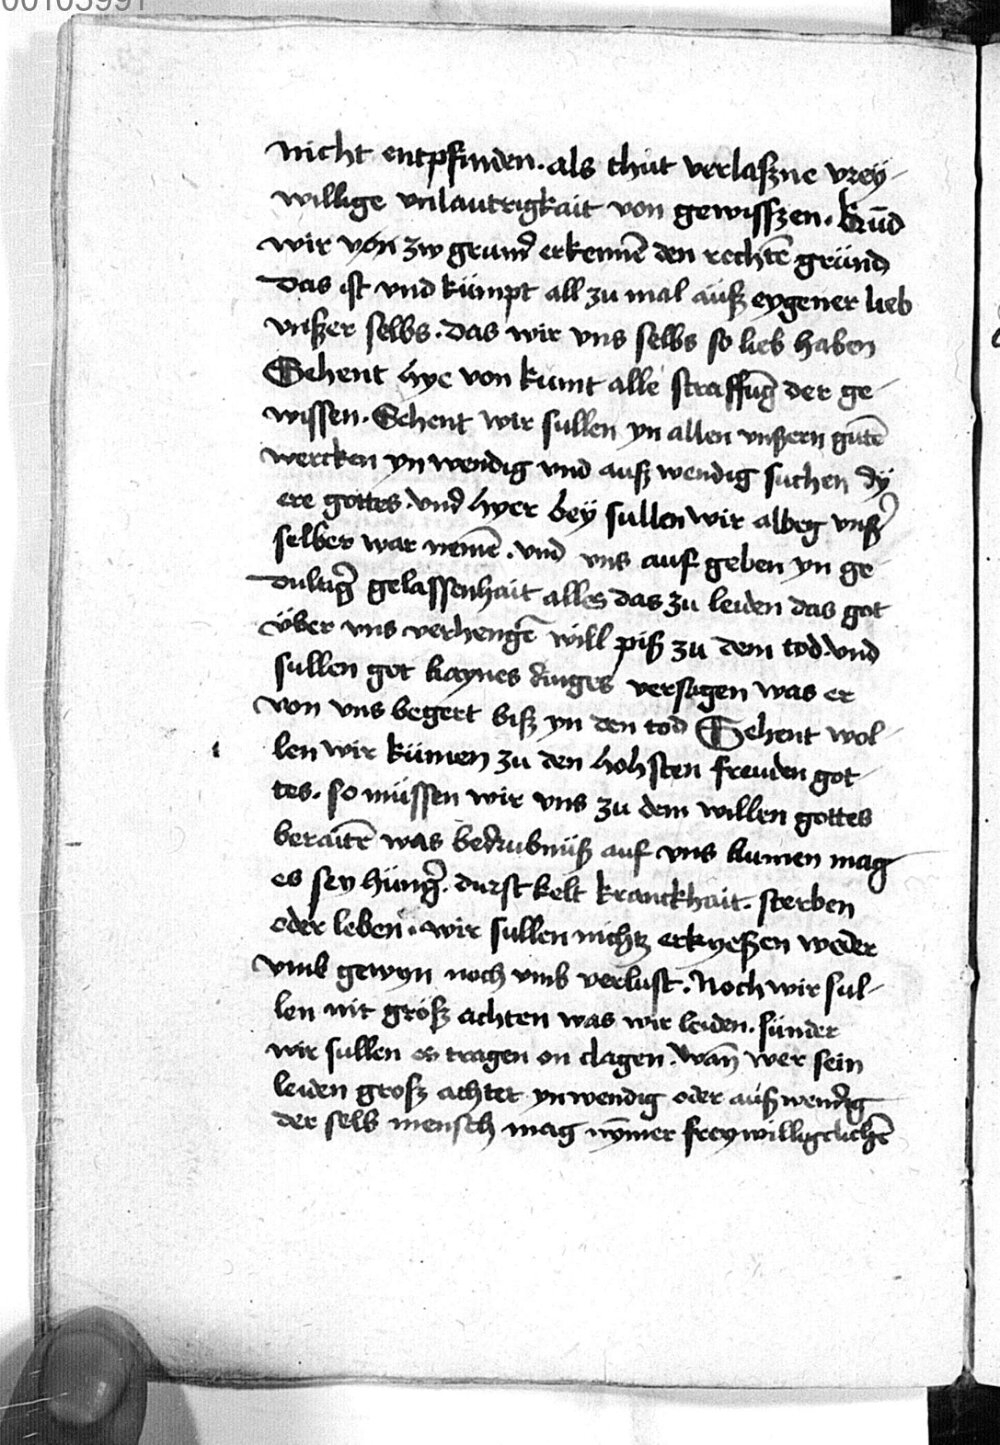 00103991
nicht entpfinden. als thut verlaßne vrey-
willige vnlautrigkait von gewisszen. kūd
wir von zw grund erkennē den rechtē gründ
Das ist vnd kümpt all zu mal auß eygener lieb
vnßer selbs. das wir vns selbs so lieb haben
Sehent hye von kumt alle straffūg der ge-
wissen. Sehent wir sullen yn allen vnßern gutē
wercken yn wendig vnd auß wendig suchen dy
ere gottes. vnd hyer bey sullen wir albeg vnß'
selber war nemē. vnd vns auf geben yn ge-
dultig' gelassenhait alles das zu leiden das got
über vns verhengē will piß zu dem tod. vnd
sullen got kaynes dinges versagen was er
von vns begert biß yn den tod Sehent wol-
len wir kümen zu den hohsten freuden got-
tes. so müssen wir vns zu dem willen gottes
beraitē was bedrubnüß auf vns kumen mag
es sey hüng'. durst kelt kranckhait. sterben
oder leben. wir sullen nichtz erkyeßen weder
vmb gewyn noch vmb verlust. Noch wir sul-
len nit groß achten was wir leiden. sunder
wir sullen es tragen on clagen. wan̄ wer sein
leiden groß achtet ynwendig oder außwendig
der selb mensch mag nȳmer freywilligclichē